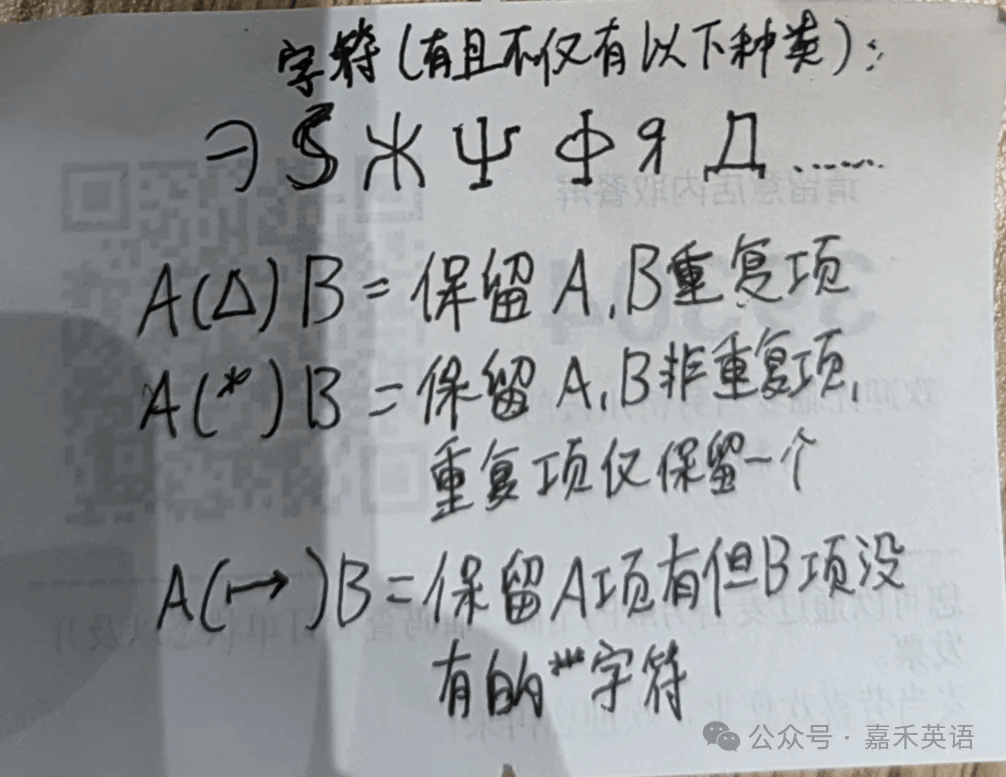 字符(有且不仅有以下种类):
Э Ж Ψ Ф Я Д ……
A(△)B=保留A,B重复项
A(*)B=保留A,B非重复项,
重复项仅保留一个
A(↦)B=保留A项有但B项没
有的字符
公众号·嘉禾英语